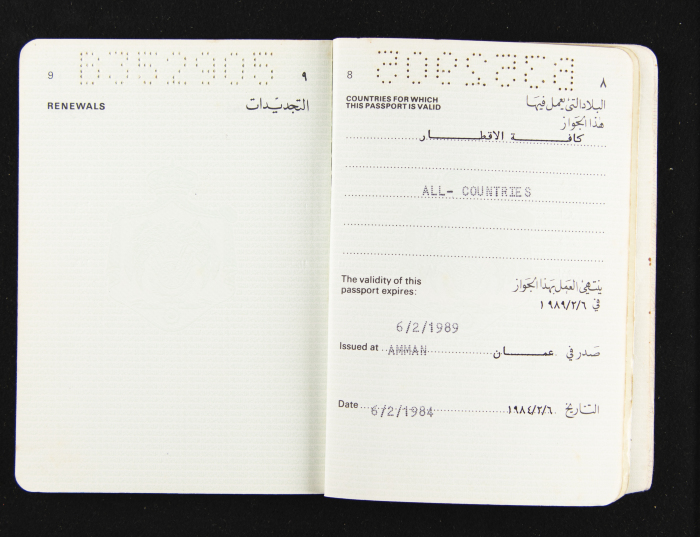 8
٨
COUNTRIES FOR WHICH
THIS PASSPORT IS VALID
البلاد التي يعمل فيها
هذا الجواز
كافة الاقطار
ALL- COUNTRIES
The validity of this
passport expires:
ينتهي العمل بهذا الجواز
في ١٩٨٩/٢/٦
6/2/1989
Issued at AMMAN عمان صدر في
Date 6/2/1984 ١٩٨٤/٢/٦ التاريخ
9
٩
RENEWALS
التجديدات